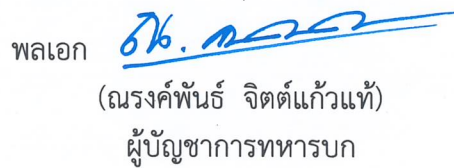 พลเอก
(ณรงค์พันธ์ จิตต์แก้วแท้)
ผู้บัญชาการทหารบก